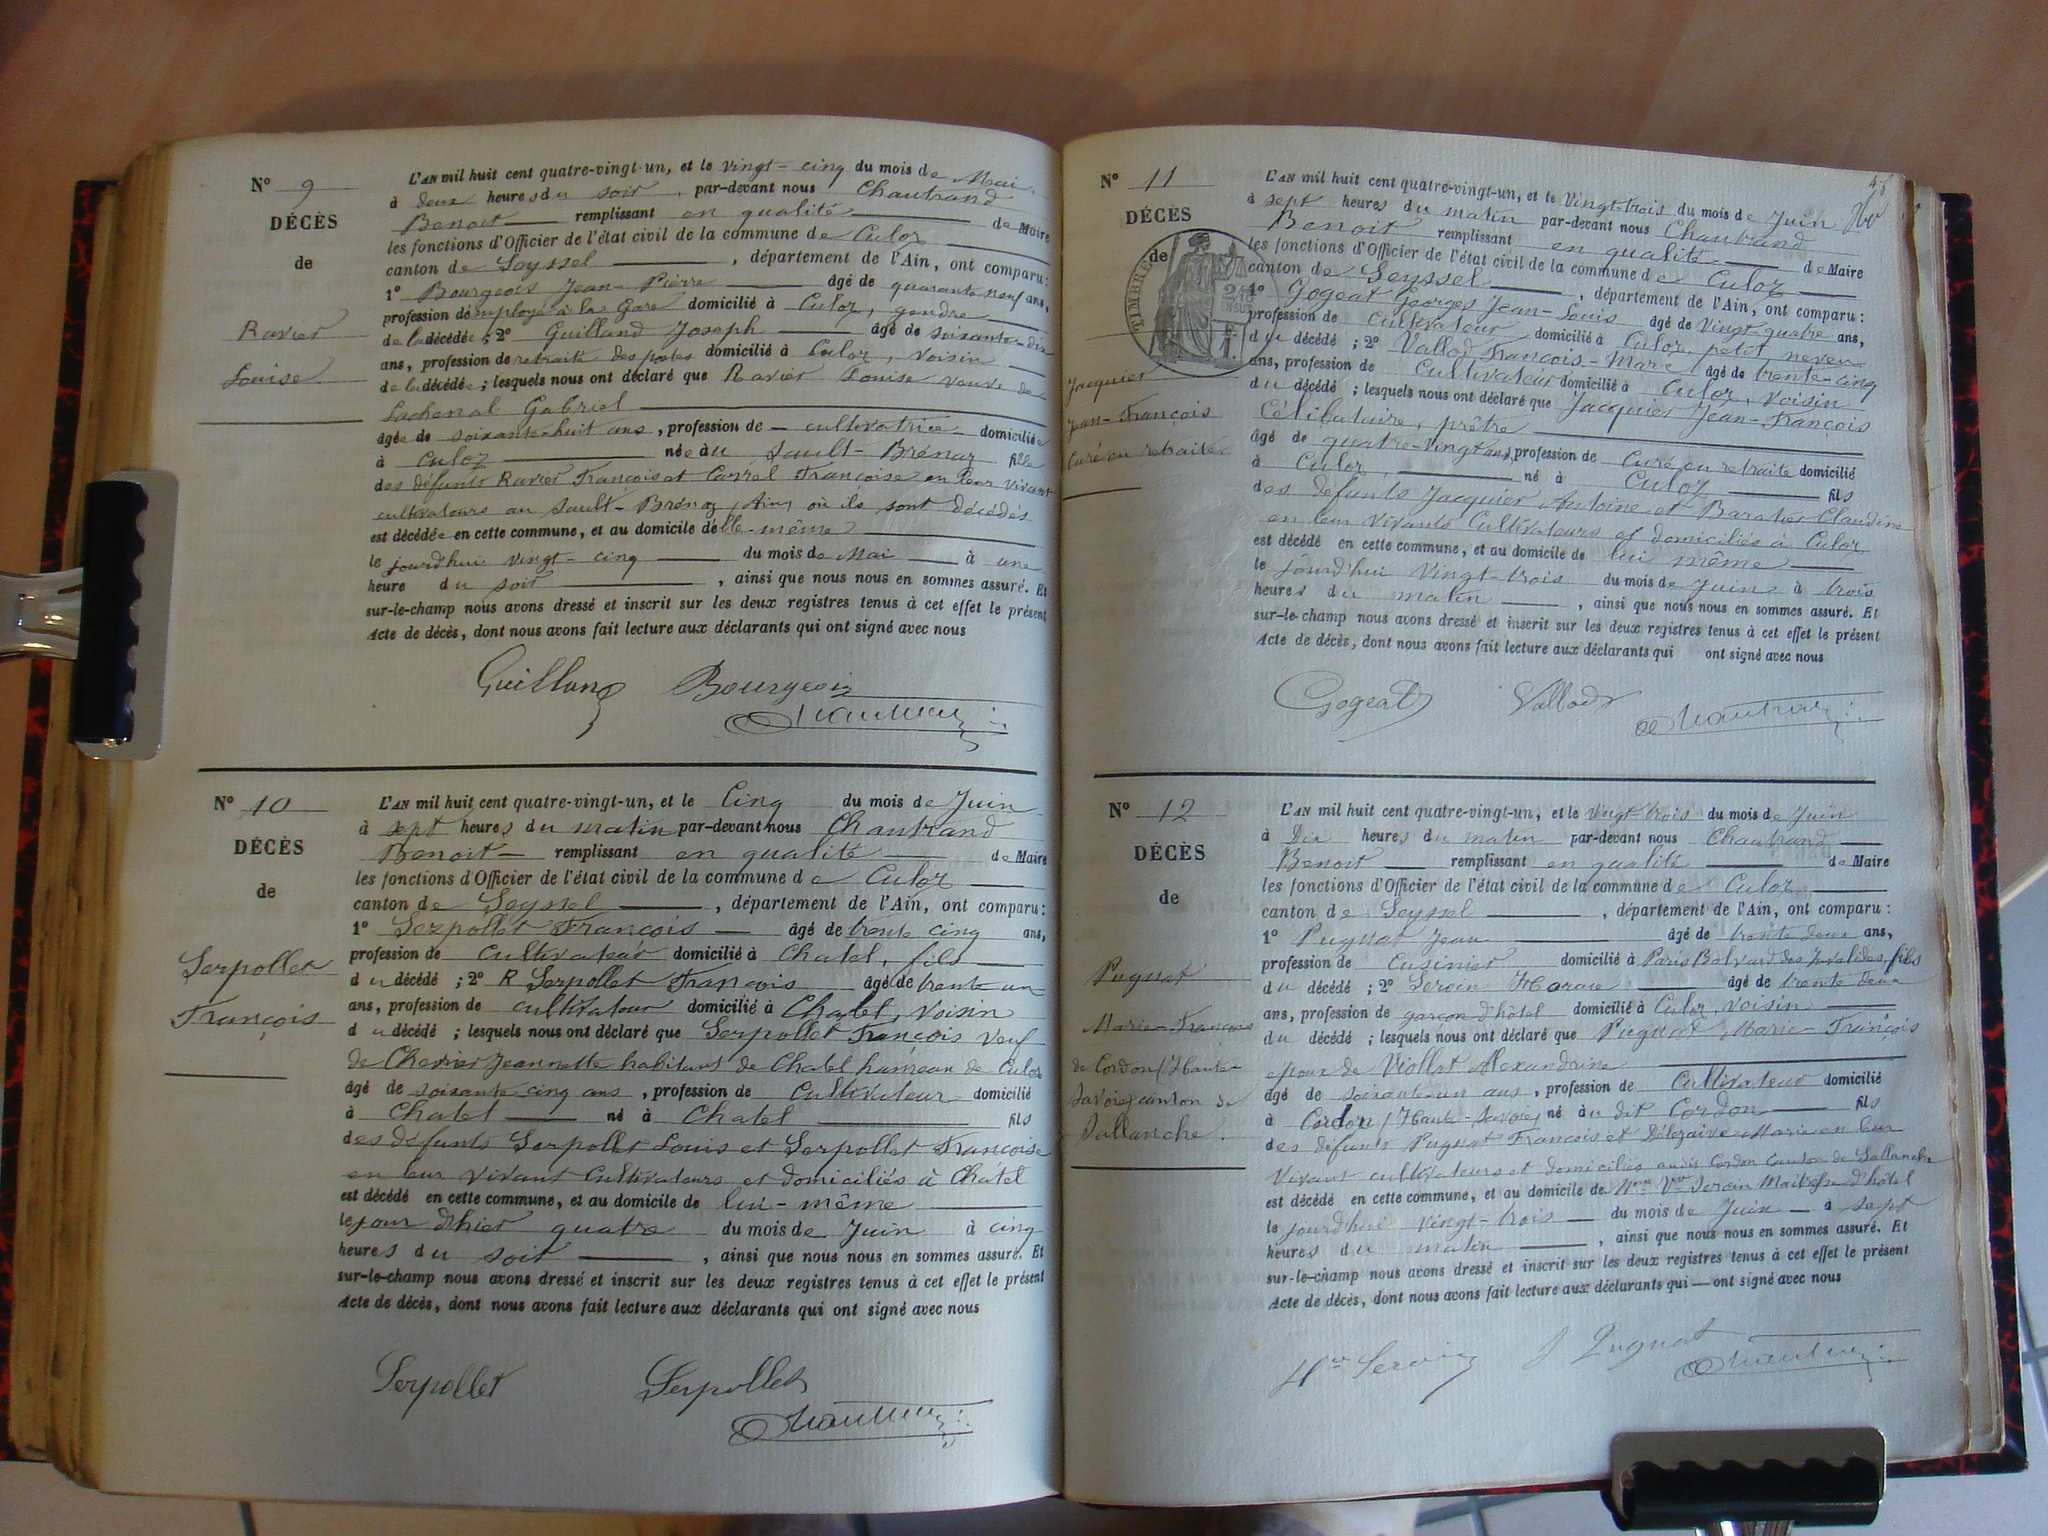 N° 9
DÉCÈS
de
Ravier
Louise
L'AN mil huit cent quatre-vingt-un, et le vingt-cinq du mois de Mai
à deux heures du soir, par-devant nous Chautrand
Benoit remplissant en qualité de Maire
les fonctions d'Officier de l'état civil de la commune de Culoz
canton de Seyssel, département de l'Ain, ont comparu:
1° Bourgeois Jean-Pierre âgé de quarante neuf ans,
profession de employé à la Gare domicilié à Culoz, gendre
de la décédée; 2° Guilland Joseph âgé de soixante-dix
ans, profession de retraité des postes domicilié à Culoz, voisin
de la décédée; lesquels nous ont déclaré que Ravier Louise veuve de
Lachenal Gabriel
âgée de soixante-huit ans, profession de cultivatrice domiciliée
à Culoz née à du Sault-Brénaz fille
des défunts Ravier François et Carrel Françoise en leur vivant
cultivateurs au Sault-Brénaz, Ain, où ils sont décédés
est décédée en cette commune, et au domicile d'elle-même
le jourd'hui vingt-cinq du mois de Mai à une
heure du soir, ainsi que nous nous en sommes assuré. Et
sur-le-champ nous avons dressé et inscrit sur les deux registres tenus à cet effet le présent
Acte de décès, dont nous avons fait lecture aux déclarants qui ont signé avec nous
Guilland Bourgeois
Chautrand
N° 10
DÉCÈS
de
Serpollet
François
L'AN mil huit cent quatre-vingt-un, et le Cinq du mois de Juin
à sept heures du matin par-devant nous Chautrand
Benoit remplissant en qualité de Maire
les fonctions d'Officier de l'état civil de la commune de Culoz
canton de Seyssel, département de l'Ain, ont comparu:
1° Serpollet François âgé de trente cinq ans,
profession de Cultivateur domicilié à Chatel, fils
du décédé; 2° R Serpollet François âgé de trente un
ans, profession de cultivateur domicilié à Chatel, voisin
du décédé; lesquels nous ont déclaré que Serpollet François veuf
de Chevrier Jeannette habitant de Chatel hameau de Culoz
âgé de soixante cinq ans, profession de Cultivateur domicilié
à Chatel né à Chatel fils
des défunts Serpollet Louis et Serpollet Françoise
en leur vivant Cultivateurs et domiciliés à Chatel
est décédé en cette commune, et au domicile de lui-même
le jour d'hier quatre du mois de Juin à cinq
heures du soir, ainsi que nous nous en sommes assuré. Et
sur-le-champ nous avons dressé et inscrit sur les deux registres tenus à cet effet le présent
Acte de décès, dont nous avons fait lecture aux déclarants qui ont signé avec nous
Serpollet Serpollet
Chautrand
N° 11
DÉCÈS
de
TIMBRE
Jacquier
Jean-François
Curé en retraite
L'AN mil huit cent quatre-vingt-un, et le Vingt-trois du mois de Juin
à sept heures du matin par-devant nous Chautrand
Benoit remplissant en qualité de Maire
les fonctions d'Officier de l'état civil de la commune de Culoz
canton de Seyssel, département de l'Ain, ont comparu:
1° Gogeat Georges Jean-Louis âgé de Vingt-quatre ans,
profession de Cultivateur domicilié à Culoz, petit neveu
du décédé; 2° Vallod François-Marc âgé de trente-cinq
ans, profession de Cultivateur domicilié à Culoz, voisin
du décédé; lesquels nous ont déclaré que Jacquier Jean-François
Célibataire, prêtre
âgé de quatre-vingt ans, profession de Curé en retraite domicilié
à Culoz, né à Culoz fils
des défunts Jacquier Antoine et Baratier Claudine
en leur vivants Cultivateurs et domiciliés à Culoz
est décédé en cette commune, et au domicile de lui même
le jourd'hui Vingt-trois du mois de Juin à trois
heures du matin, ainsi que nous nous en sommes assuré. Et
sur-le-champ nous avons dressé et inscrit sur les deux registres tenus à cet effet le présent
Acte de décès, dont nous avons fait lecture aux déclarants qui ont signé avec nous
Gogeat Vallod
Chautrand
N° 12
DÉCÈS
de
Pugnat
Marie-François
de Cordon (Haute-
Savoie) canton de
Sallanche.
L'AN mil huit cent quatre-vingt-un, et le vingt-trois du mois de Juin
à Dix heures du matin par-devant nous Chautrand
Benoit remplissant en qualité de Maire
les fonctions d'Officier de l'état civil de la commune de Culoz
canton de Seyssel, département de l'Ain, ont comparu:
1° Pugnat Jean âgé de trente deux ans,
profession de Cusinier domicilié à Paris Bolvard des Invalides, fils
du décédé; 2° Seroin âgé de trente deux
ans, profession de garçon d'hôtel domicilié à Culoz, voisin
du décédé; lesquels nous ont déclaré que Pugnat Marie-François
époux de Viollet Alexandrine
âgé de soixante-un ans, profession de Cultivateur domicilié
à Cordon (Haute-Savoie) né à du dit Cordon fils
des défunts Pugnat François et Marie en leur
vivant cultivateurs et domiciliés audit Cordon Canton de Sallanche
est décédé en cette commune, et au domicile de Mme Vve Seroin Maitresse d'hôtel
le jourd'hui vingt-trois du mois de Juin à sept
heures du matin, ainsi que nous nous en sommes assuré. Et
sur-le-champ nous avons dressé et inscrit sur les deux registres tenus à cet effet le présent
Acte de décès, dont nous avons fait lecture aux déclarants qui ont signé avec nous
Seroin J Pugnat
Chautrand